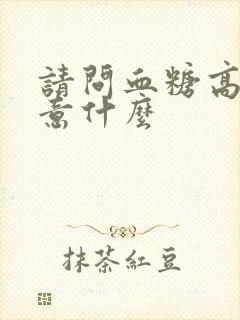 請問血糖高
意什麼
抹茶紅豆